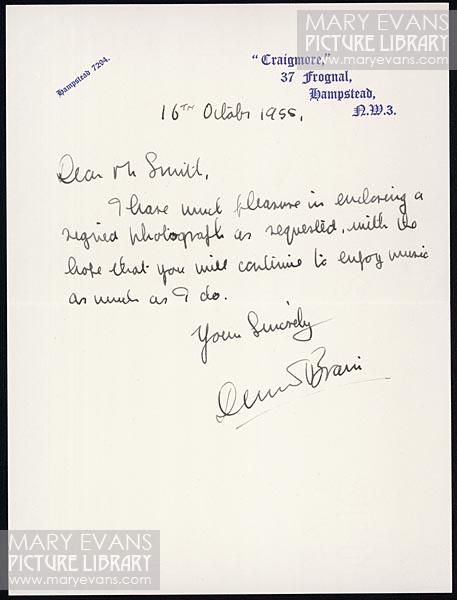 MARY EVANS
PICTURE LIBRARY
www.maryevans.com
Hampstead 7294.
"Craigmore,"
37 Frognal,
Hampstead,
N.W.3.
16TH October 1955,
Dear Mr Smith,
I have much pleasure in enclosing a
signed photograph as requested, with the
hope that you will continue to enjoy music
as much as I do.
Yours Sincerely
Dennis Brain
MARY EVANS
PICTURE LIBRARY
www.maryevans.com